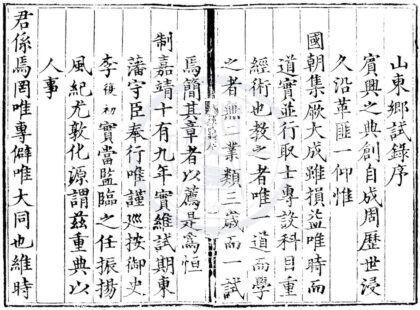 山東鄉試錄序
賓興之典創自成周歷世浸
久沿革匪一仰惟
國朝集厥大成雖損益唯時而
道實並行取士專設科目重
經術也教之者唯一道而學
之者無二業類三歲而一試
焉簡其章者以薦是為恒
制嘉靖十有九年實維試期東
藩守臣奉行唯謹巡按御史
李復初實當監臨之任振揚
風紀尤敦化源謂茲重典以
人事
君係焉罔唯專僻唯大同也維時